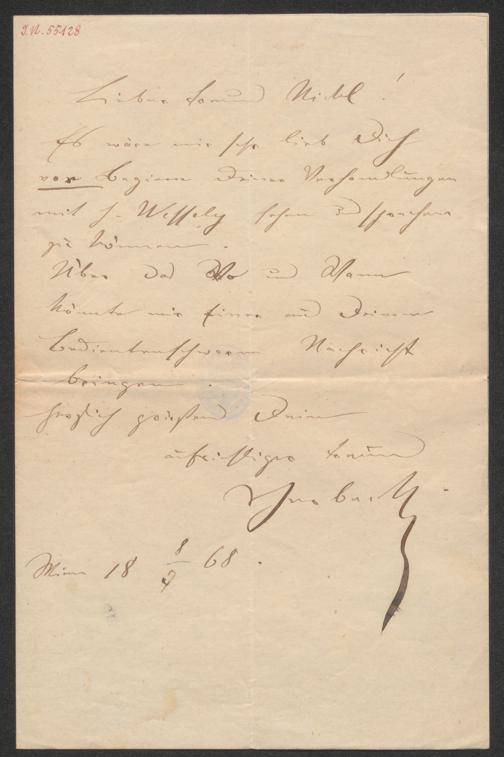 I.N. 55128
Lieber Freund Nickl!
Es wäre mir sehr lieb Dich
vor Beginn Deiner Verhandlungen
mit H. Wessely sehen u sprechen
zu können.
Über das Wo und Wann
könnte mir Einer aus Deinem
Bedientenschwarm Nachricht
bringen.
Herzlich grüßend Dein
aufrichtiger Freund
Wien 18 8/7 68.